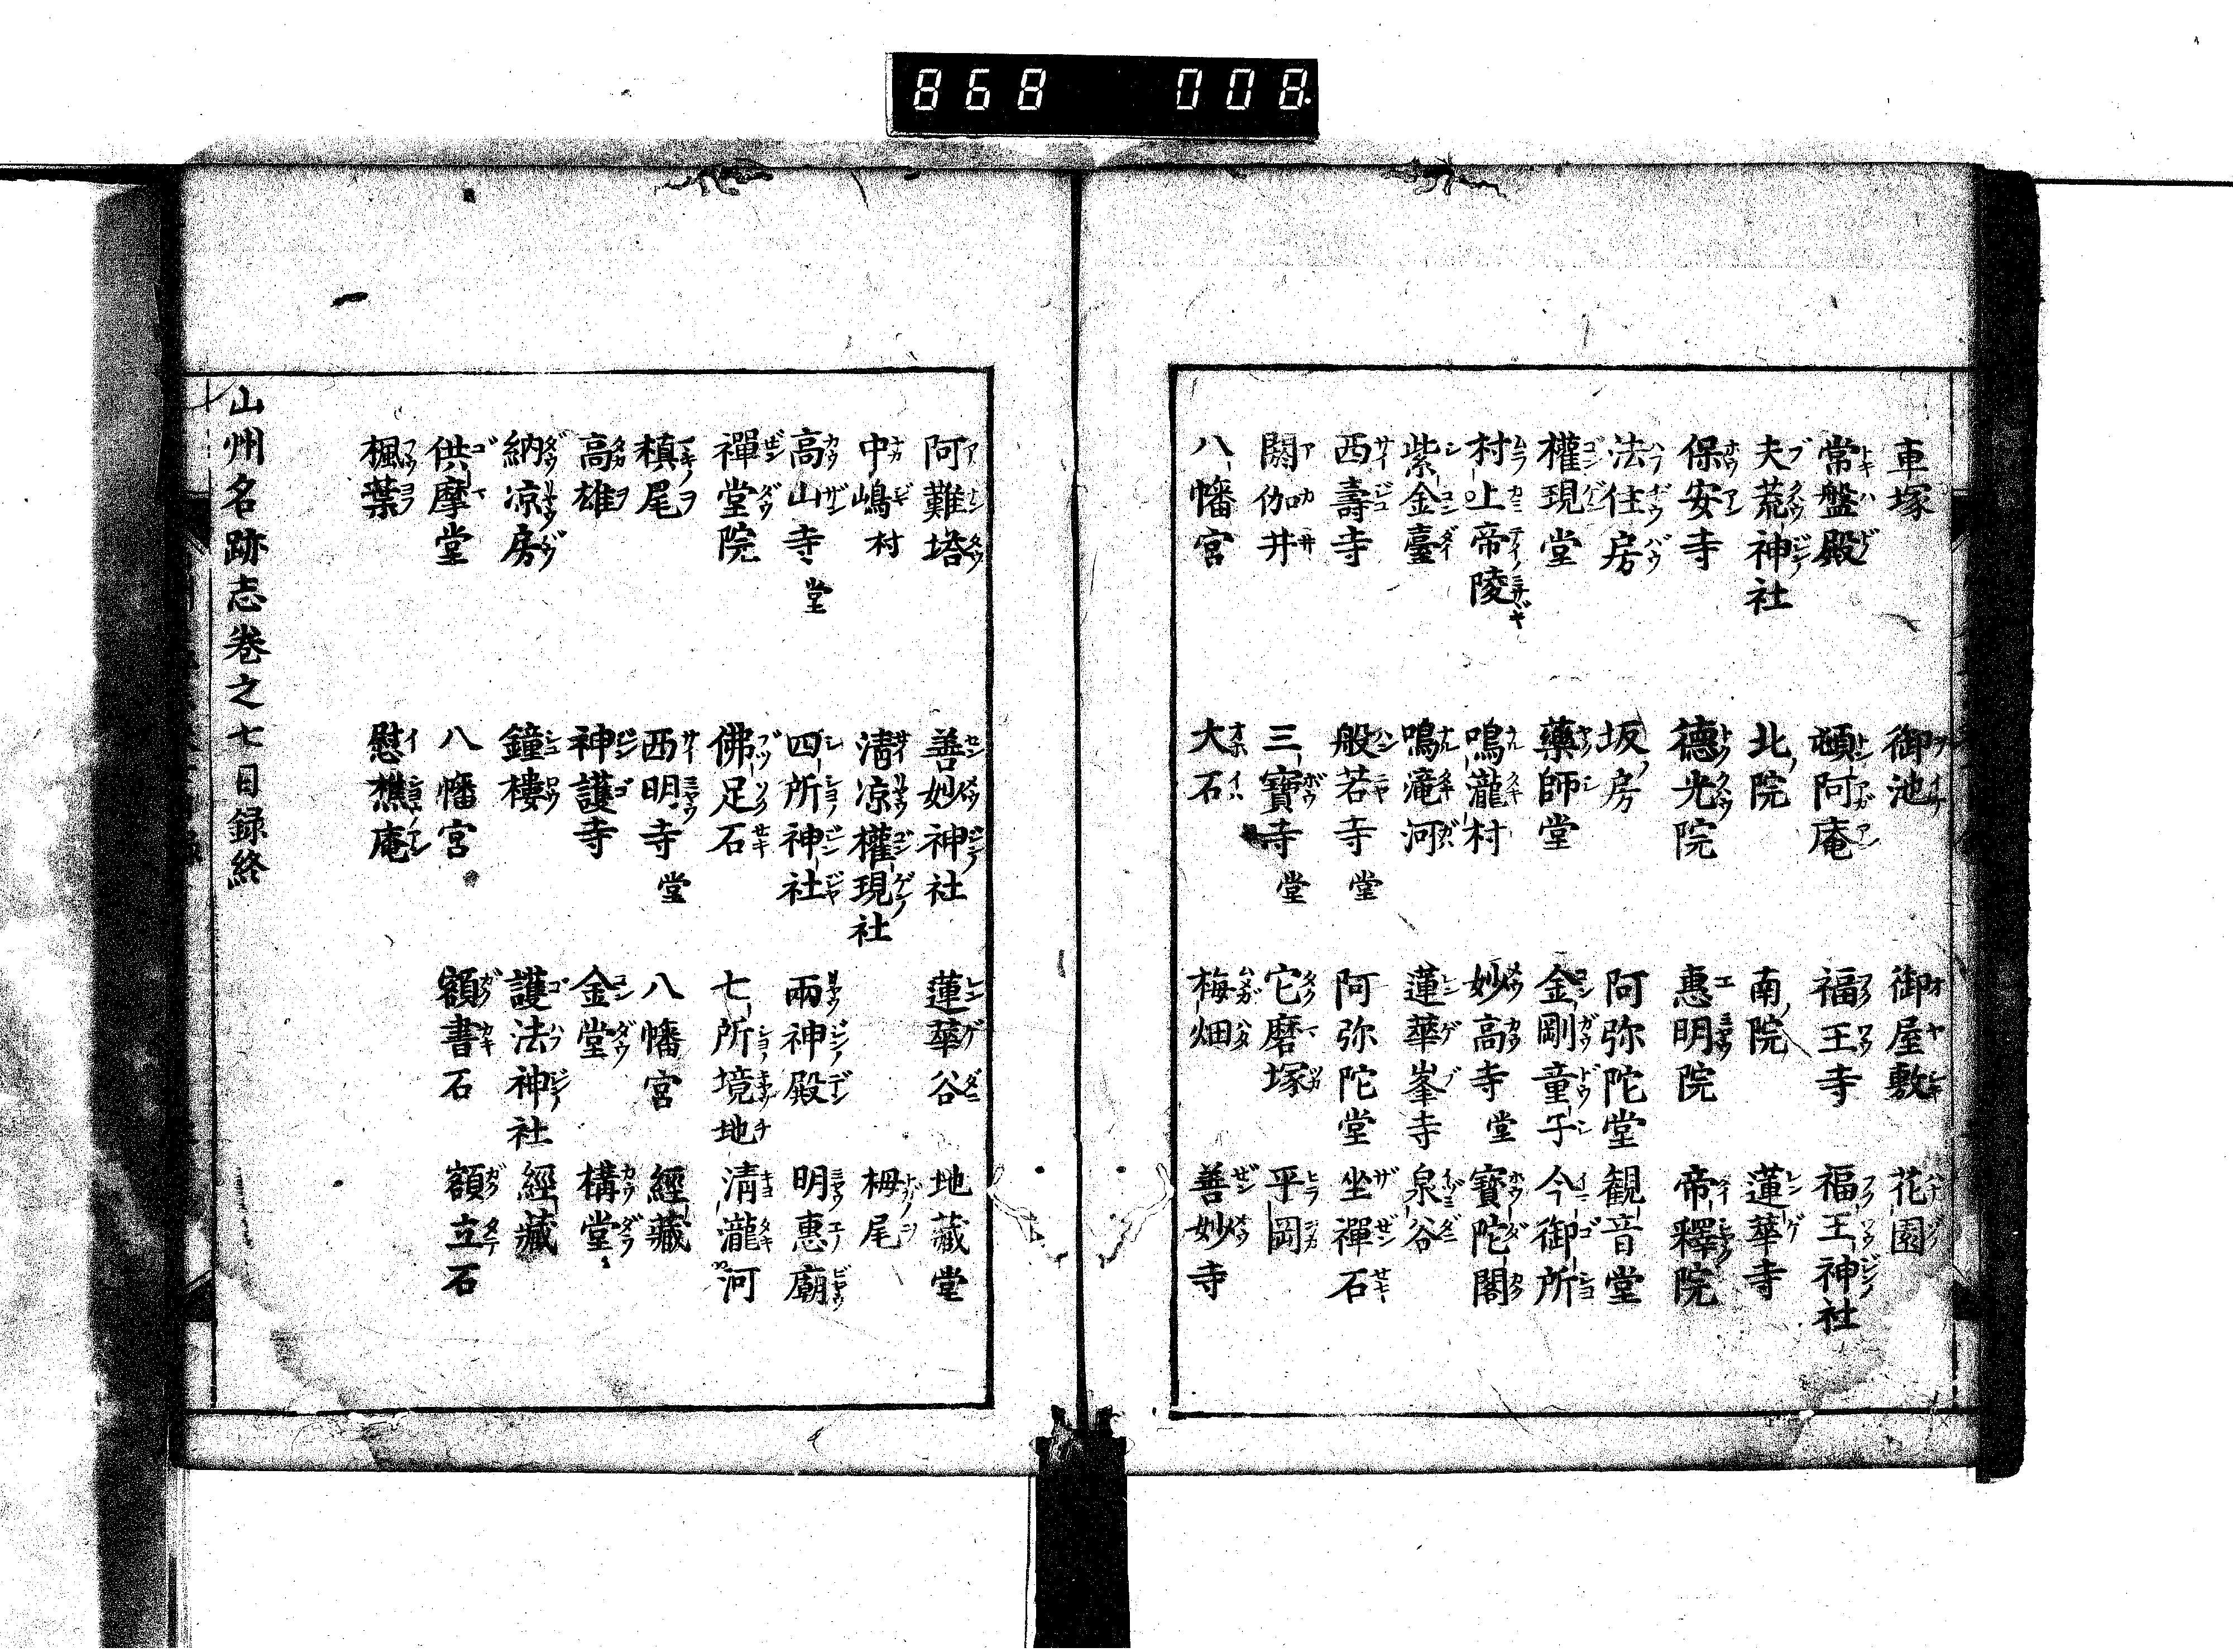 868 008.
車塚 御池 御屋敷 花園
常盤殿 頓阿庵 福王寺 福王神社
夫荒神社 北院 南院 蓮華寺
保安寺 德光院 惠明院 帝釋院
法住房 坂房 阿弥陀堂 観音堂
權現堂 藥師堂 金剛童子 今御所
村上帝陵 鳴瀧村 妙高寺堂 寳陀閣
紫金臺 鳴滝河 蓮華峯寺 泉谷
西壽寺 般若寺堂 阿弥陀堂 坐禪石
閼伽井 三寳寺堂 它磨塚 平岡
八幡宮 大石 梅畑 善妙寺
阿難塔 善妙神社 蓮華谷 地藏堂
中嶋村 清凉權現社 栂尾
高山寺堂 四所神社 兩神殿 明惠廟
禪堂院 佛足石 七所境地 清瀧河
槙尾 西明寺堂 八幡宮 經藏
高雄 神護寺 金堂 構堂
納凉房 鐘樓 護法神社 經藏
供摩堂 八幡宮 額書石 額立石
楓葉 慰樵庵
山州名跡志巻之七目録終